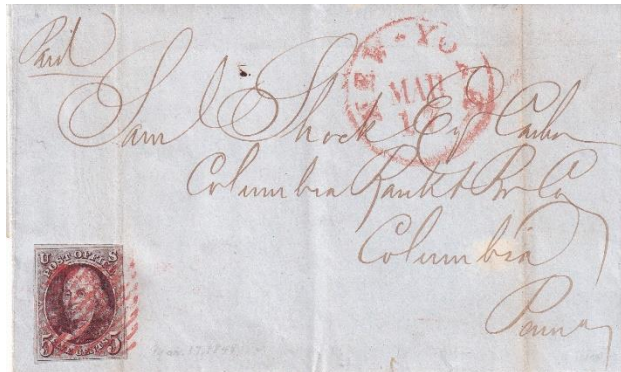 Paid
NEW-YORK
MAR
Saml Shock Esq Cashr
Columbia Bank & Br Co
Columbia
Penna
U S
POST OFFICE
5 FIVE CENTS 5